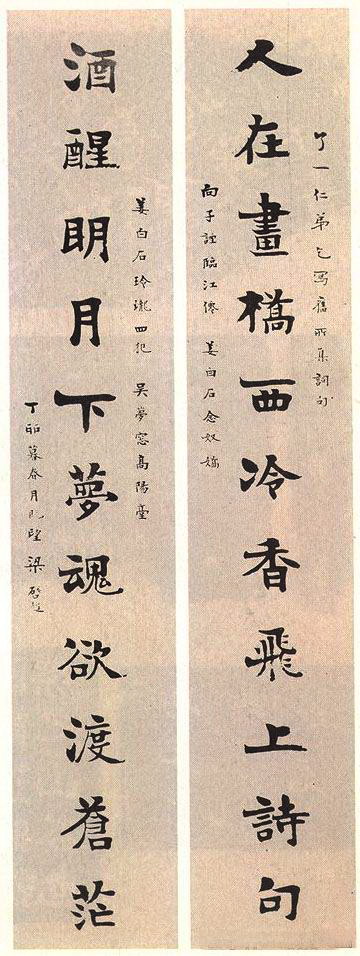 了一仁弟乞寫舊所集詞句
人在畫橋西冷香飛上詩句
向子諲臨江僊 姜白石念奴嬌
姜白石玲瓏四犯 吳夢窓高陽臺
酒醒眀月下夢魂欲渡蒼茫
丁卯暮春月既望 梁啓超